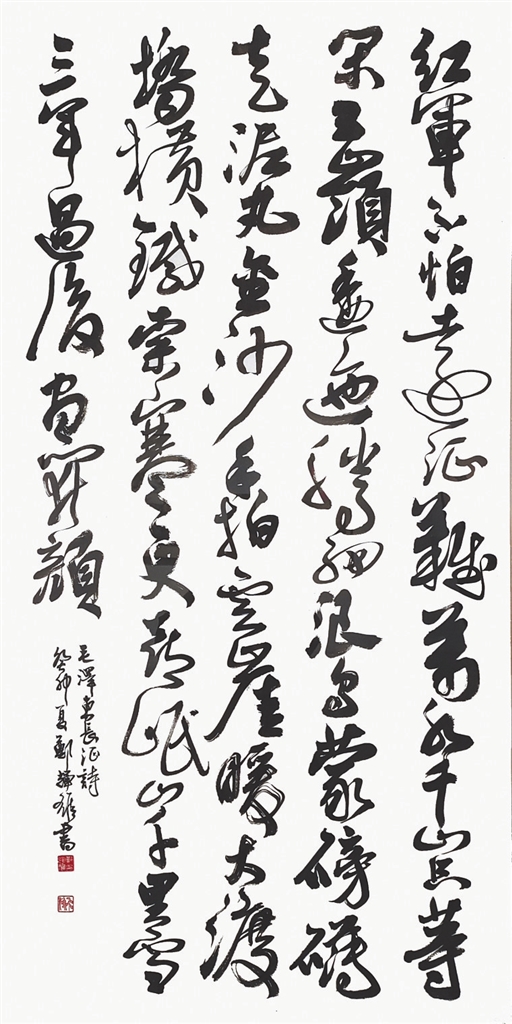 紅軍不怕遠征難萬水千山只等
閑五嶺逶迤騰細浪烏蒙磅礴
走泥丸金沙水拍雲崖暖大渡
橋橫鐵索寒更喜岷山千里雪
三軍過後盡開顏
毛澤東長征詩
癸卯夏鄭雄書